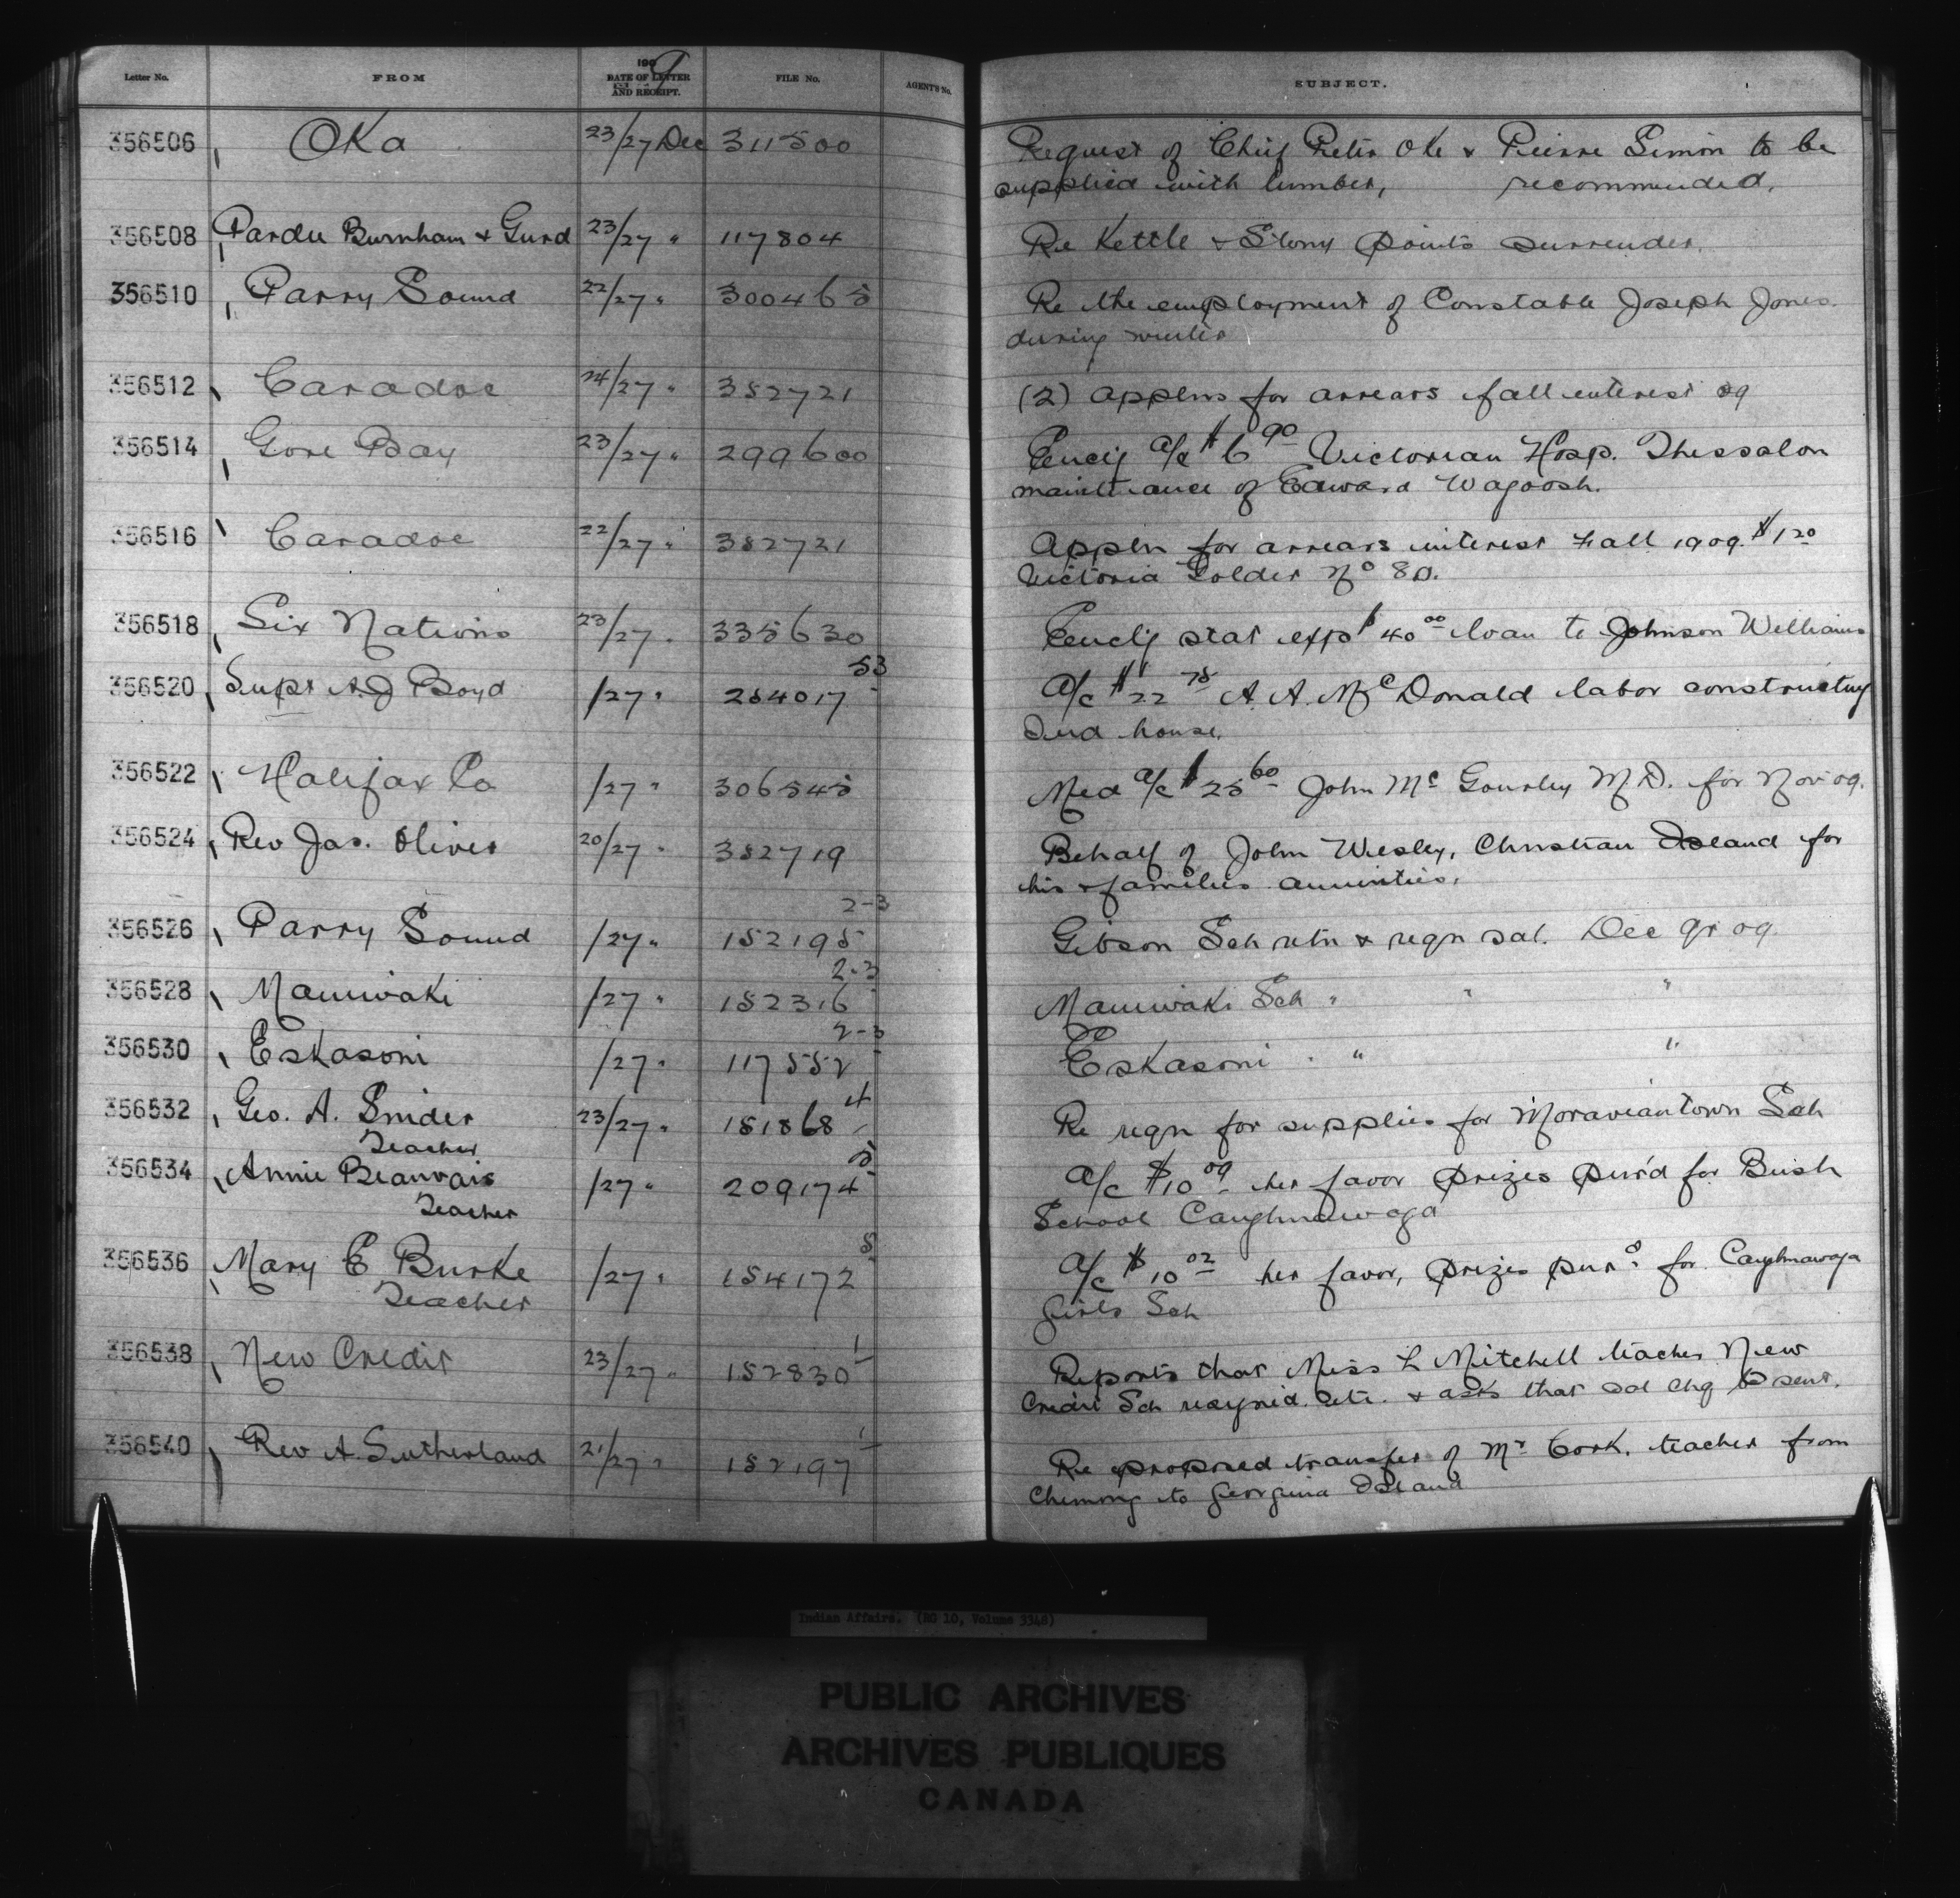 Letter No. FROM 1909 DATE OF LETTER AND RECEIPT. FILE No. AGENT'S No. SUBJECT.
356506 Oka 23/27 Dec 311500 Request of Chief Peter Oke & Pierre Simon to be
supplied with lumber, recommended.
356508 Pardee Burnham & Gurd 23/27 " 117804 Re Kettle & Stony Points surrender.
356510 Parry Sound 22/27 " 300465 Re the employment of Constable Joseph Jones
during winter
356512 Caradoc 24/27 " 352721 (2) Applns for arrears fall interest 09
356514 Gore Bay 23/27 " 299600 Enclg a/c $6.90 Victorian Hosp. Thessalon
maintenance of Edward Wagoosh.
356516 Caradoc 22/27 " 352721 Appln for arrears interest Fall 1909 $1.20
Victoria Dolder No 80.
356518 Six Nations 23/27 " 335630 Enclg stat exp $40.00 loan to Johnson Williams
356520 Supt A.J Boyd /27 " 254017 53 A/c $22.75 A. A. McDonald labor constructing
Ind house.
356522 Halifax Co /27 " 306545 Med a/c $25.60 John Mc Gourley M.D. for Nov 09.
356524 Rev Jas. Oliver 20/27 " 352719 Behalf of John Wesley, Christian Island for
his & families annuities.
356526 Parry Sound /27 " 152195 2-3 Gibson Sch retn & reqn sal. Dec qr 09.
356528 Maniwaki /27 " 152316 2-3 Maniwaki Sch " " "
356530 Eskasoni /27 " 117552 2-3 Eskasoni " " "
356532 Geo. A. Snider 23/27 " 151868 4 Re reqn for supplies for Moraviantown Sch
Teacher
356534 Annie Beauvais /27 " 209174 5 A/c $10.09 her favor prizes purd for Bush
Teacher School Caughnawaga
356536 Mary E Burke /27 " 154172 5 A/c $10.02 her favor, prizes purd for Caughnawaga
Teacher Girls Sch
356538 New Credit 23/27 " 152830 1 Reports that Miss L Mitchell teacher New
Credit Sch resigned etc. & asks that sal chq be sent.
356540 Rev A. Sutherland 21/27 " 152197 1 Re proposed transfer of Mr Cork, teacher from
Chemong to Georgina Island
Indian Affairs. (RG 10, Volume 3348)
PUBLIC ARCHIVES
ARCHIVES PUBLIQUES
CANADA